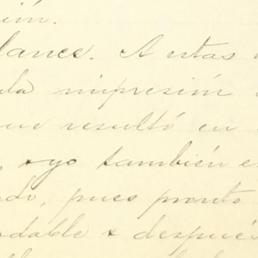 ión.
lance. A estas
la impresión
ue resultó en
, & yo también e
do, pues pronto
dable & despué